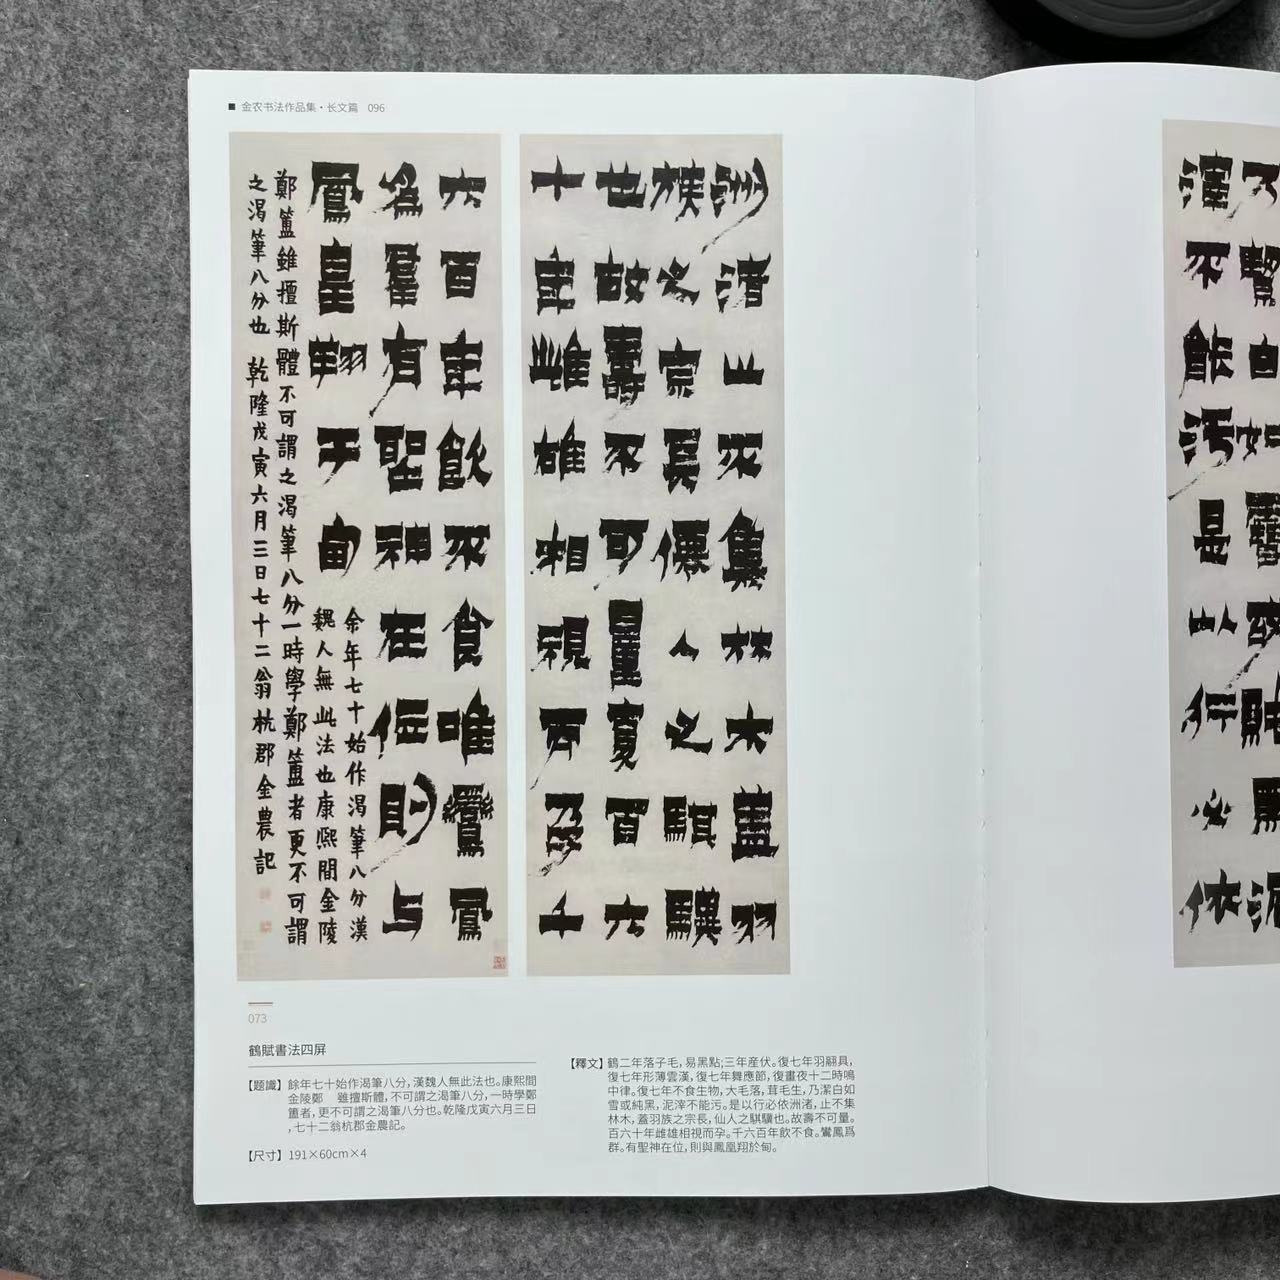 金农书法作品集·长文篇 096
滓不能污是以行必依
洲渚止不集林木蓋羽
族之宗長僊人之騏驥
也故壽不可量夏百六
十年雌雄相視而孕千
六百年飲不食唯鸞鳳
為羣有聖神在位則與
鳳皇翔于甸
余年七十始作渴筆八分漢
魏人無此法也康熙間金陵
鄭簠雖擅斯體不可謂之渴筆八分一時學鄭簠者更不可謂
之渴筆八分也 乾隆戊寅六月三日七十二翁杭郡金農記
073
鶴賦書法四屏
【題識】餘年七十始作渴筆八分,漢魏人無此法也。康熙間
金陵鄭 雖擅斯體,不可謂之渴筆八分,一時學鄭
簠者,更不可謂之渴筆八分也。乾隆戊寅六月三日
,七十二翁杭郡金農記。
【尺寸】191×60cm×4
【釋文】鶴二年落子毛,易黑點;三年産伏。復七年羽翮具,
復七年形薄雲漢,復七年舞應節,復晝夜十二時鳴
中律。復七年不食生物,大毛落,茸毛生,乃潔白如
雪或純黑,泥滓不能污。是以行必依洲渚,止不集
林木,蓋羽族之宗長,仙人之騏驥也。故壽不可量。
百六十年雌雄相視而孕。千六百年飲不食。鸞鳳爲
群。有聖神在位,則與鳳凰翔於甸。